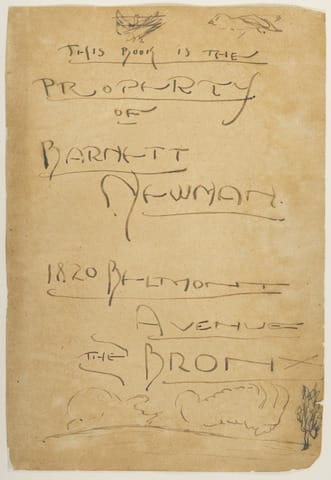 THIS BOOK IS THE
PROPERTY
OF
BARNETT
NEWMAN.
1820 BELMONT
AVENUE
THE BRONX